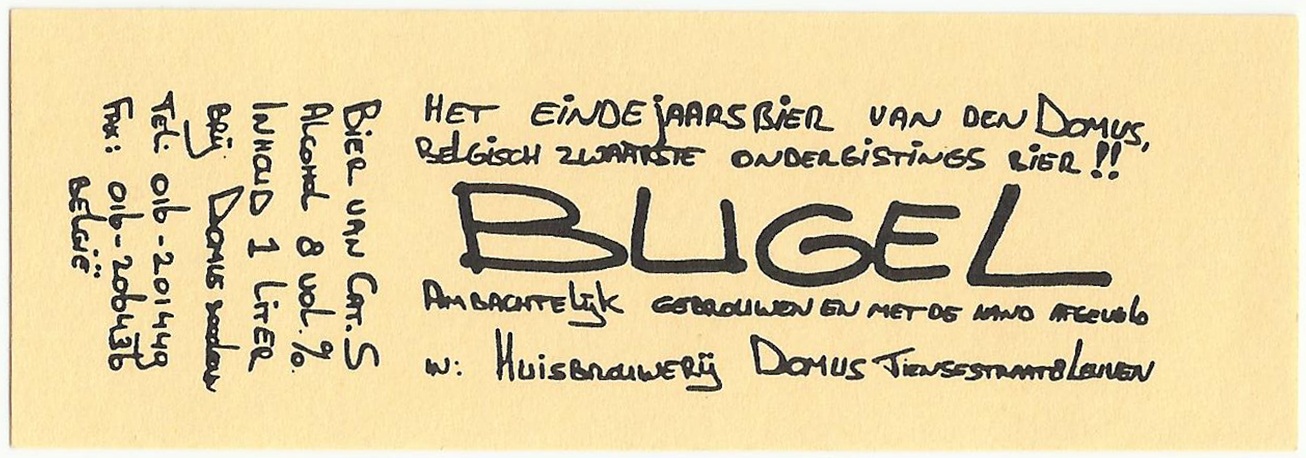 HET EINDEJAARSBIER VAN DEN DOMUS,
BELGISCH ZWAARSTE ONDERGISTINGS BIER!!
BUGEL
AMBACHTELIJK GEBROUWEN EN MET DE HAND AFGEVULD
IN: HUISBROUWERIJ DOMUS TIENSESTRAAT 8 LEUVEN
BIER VAN CAT. S
ALCOHOL 8 VOL. %.
INHOUD 1 LITER
BRIJ. DOMUS LEUVEN
TEL: 016-201449
FAX: 016-206436
BELGIË